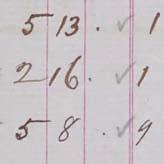 5 13. ✓ 1
2 16. ✓ 1
5 8. ✓ 9